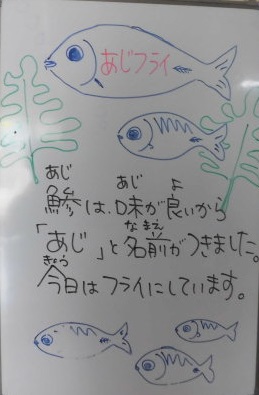 あじフライ
あじ あじ よ
鯵は、味が良いから
なまえ
「あじ」と名前がつきました。
きょう
今日はフライにしています。